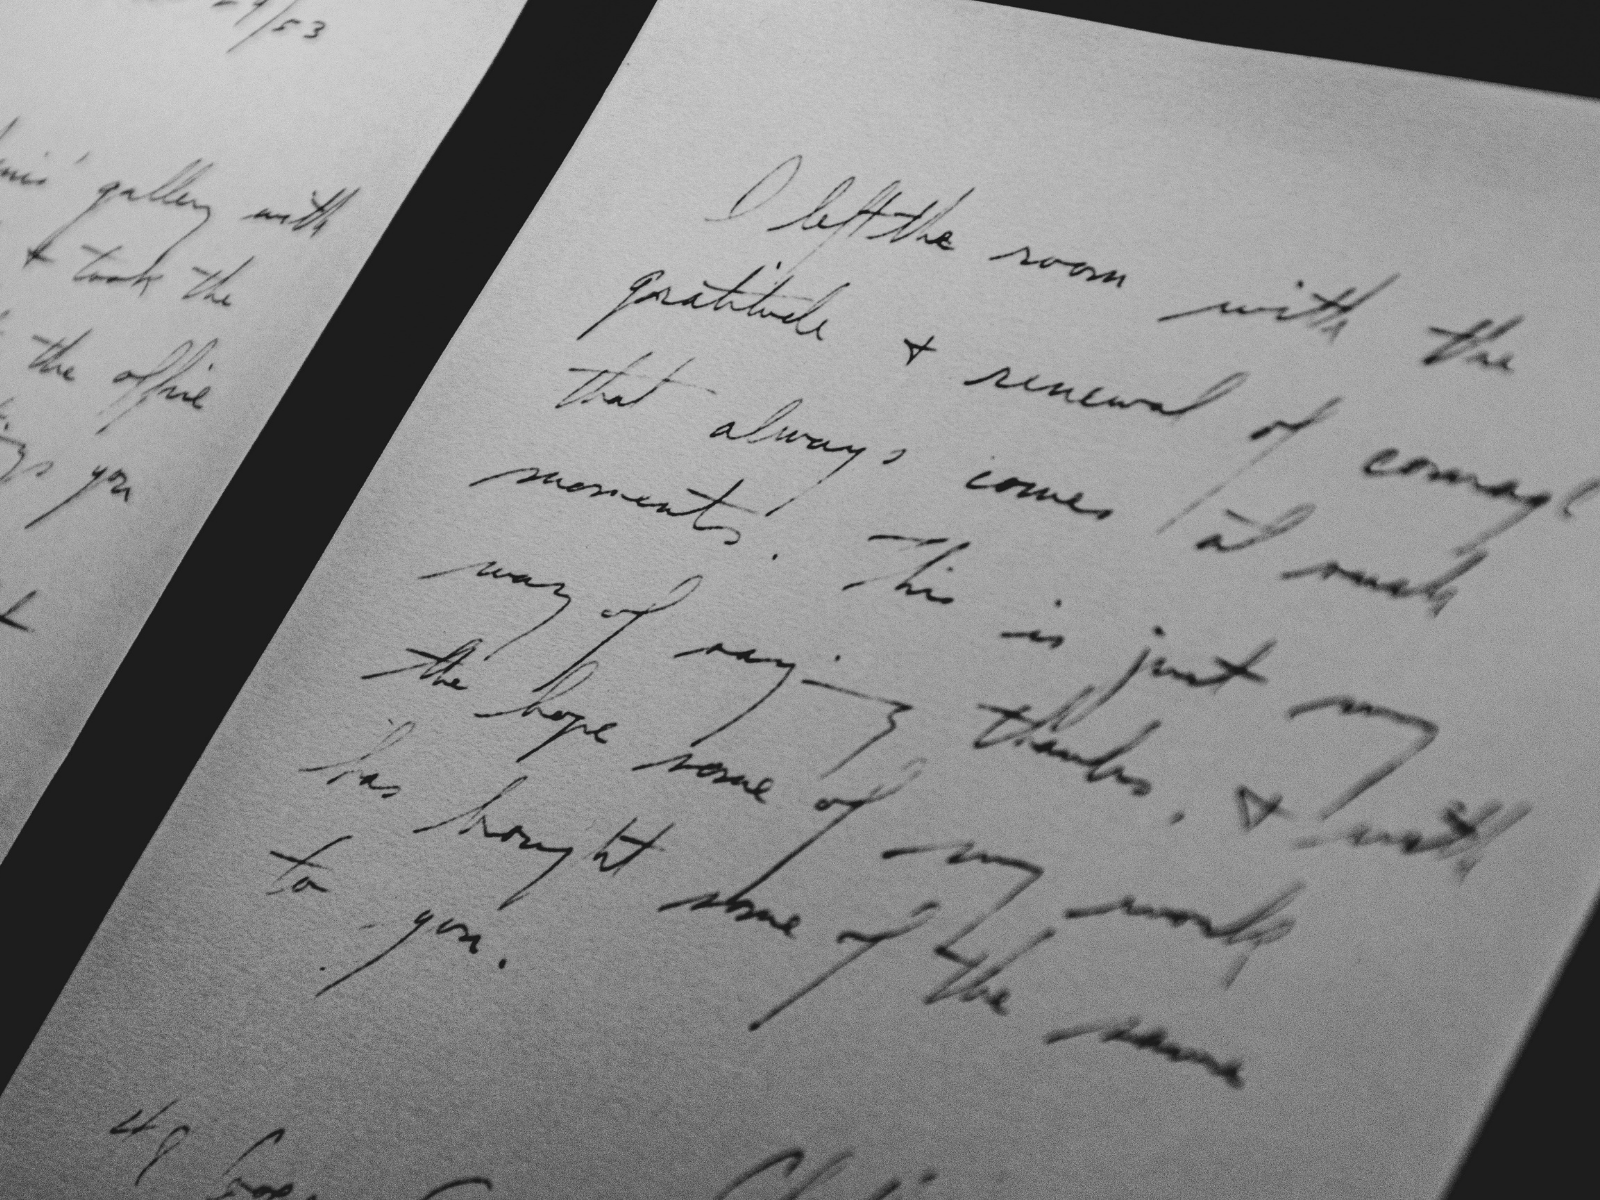 /53
gallery with
& took the
the office
you
I left the room with the
gratitude & renewal of courage
that always comes at such
moments. This is just my
way of saying thanks, & with
the hope some of my work
has brought some of the same
to you.
48